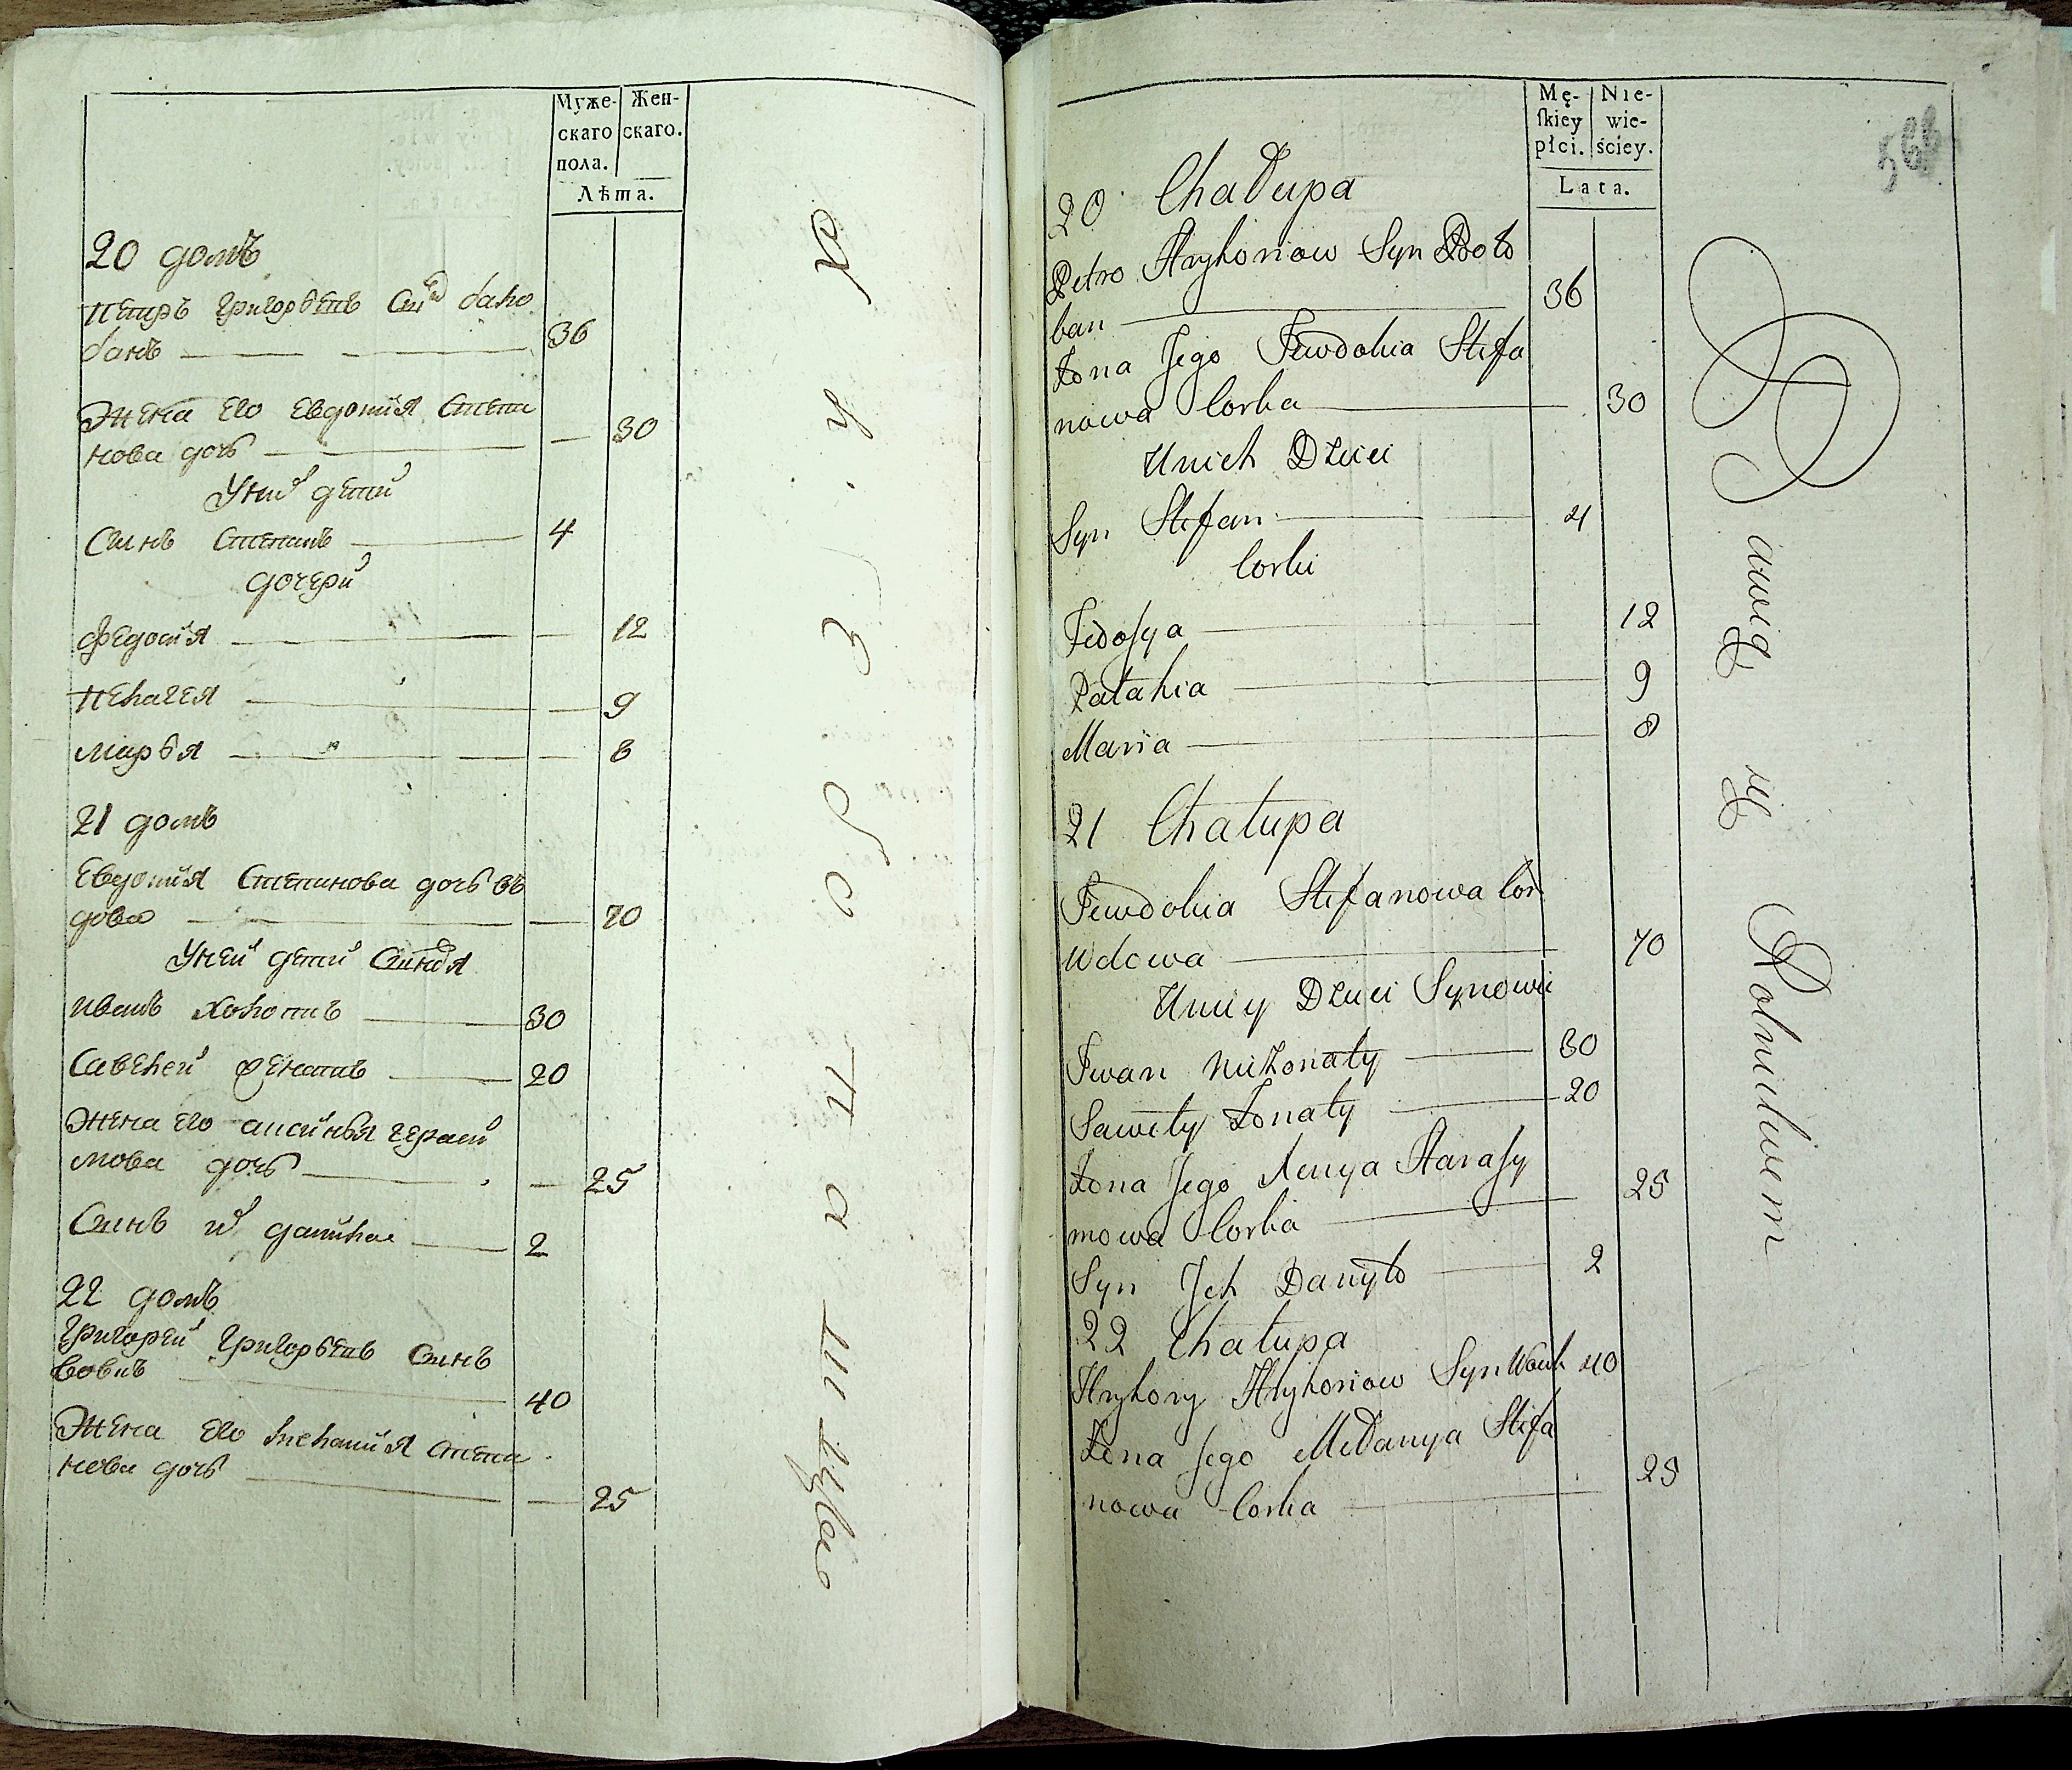 Муже-
скаго
пола.
Жен-
скаго.
Лѣта.
20 домъ
Петръ Григорьевъ Синъ Бало
банъ 36
Жена его Евдокия Степа
нова дочь 30
У них дети
Синъ Степанъ 4
дочери
Федосия 12
Пелагея 9
Марья 8
21 домъ
Евдокия Степанова дочь въ
дова 70
У ней дети Синовя
Иванъ Холостъ 30
Савелей Женатъ 20
Жена его Аксинья Гераси
мова дочь 25
Синъ их Данила 2
22 домъ
Григорей Григорьевъ Синъ
Вовкъ 40
Жена его Мелания Степа
нова дочь 25
Mę-
ſkiey
płci.
Nie-
wie-
ściey.
Lata.
20 Chałupa
Petro Hryhoriow Syn Boło
ban 36
Żona Jego Jewdokia Stefa
nowa Corka 30
U nich Dzieci
Syn Stefan 4
Corki
Fedoſya 12
Palahia 9
Maria 8
21 Chałupa
Jewdokia Stefanowa Cor
Wdowa 70
U niey Dzieci Synowie
Iwan Nieżonaty 30
Sawely Żonaty 20
Żona Jego Xenya Haraſy
mowa Corka 25
Syn Ich Danyło 2
22 Chałupa
Hryhory Hryhoriow Syn Wowk 40
Żona Jego Mełanya Stefa
nowa Corka 25
Bawią się Rolnictwem